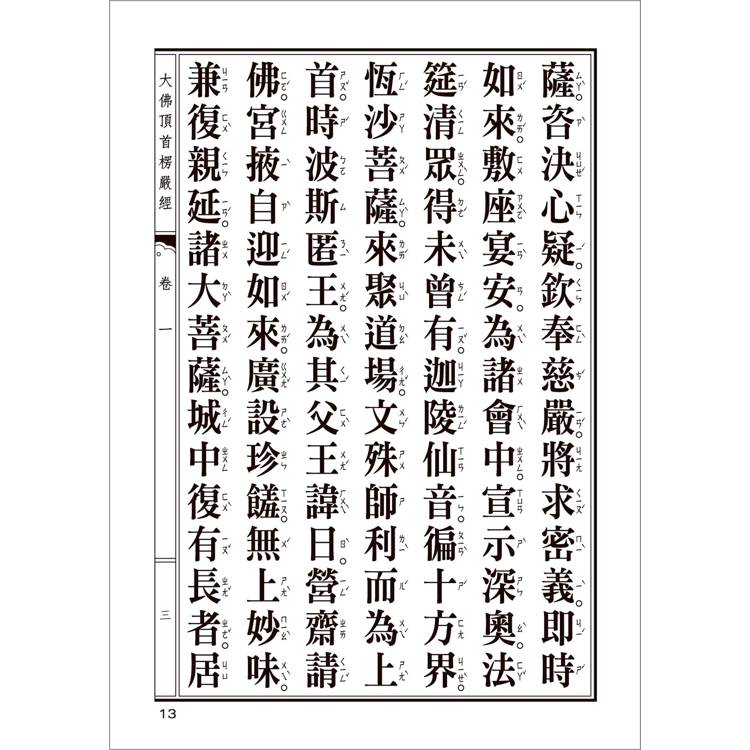 薩。咨決心疑。欽奉慈嚴。將求密義。即時
如來。敷座宴安。為諸會中。宣示深奧。法
筵清眾。得未曾有。迦陵仙音。徧十方界。
恆沙菩薩。來聚道場。文殊師利而為上
首。時波斯匿王。為其父王諱日。營齋請
佛。宮掖自迎如來。廣設珍饈。無上妙味。
兼復親延。諸大菩薩。城中復有長者。居
大佛頂首楞嚴經
卷一
三
13